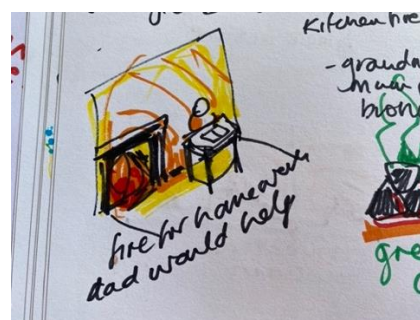 Kitchen fire
- grandm
mum
fire for homework
dad would help
gre